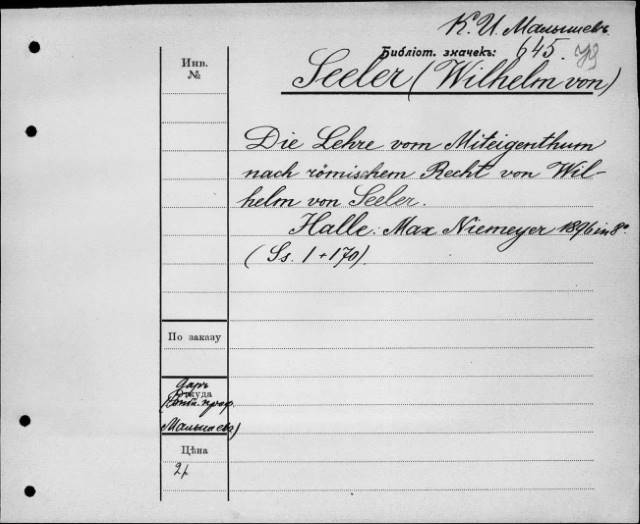 К. И. Малышевъ
Библіот. значекъ: 645.
Инв.
№
Seeler (Wilhelm von)
Die Lehre vom Miteigenthum
nach römischem Recht von Wil-
helm von Seeler.
Halle: Max Niemeyer 1896 in 8º.
(Ss. 1+170).
По заказу
Даръ
Откуда
проф.
Малышева)
Цѣна
2р